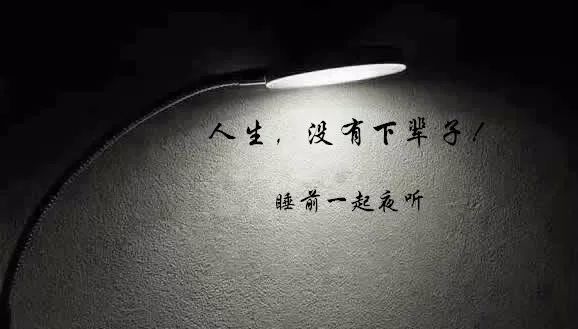 人生，没有下辈子！
睡前一起夜听